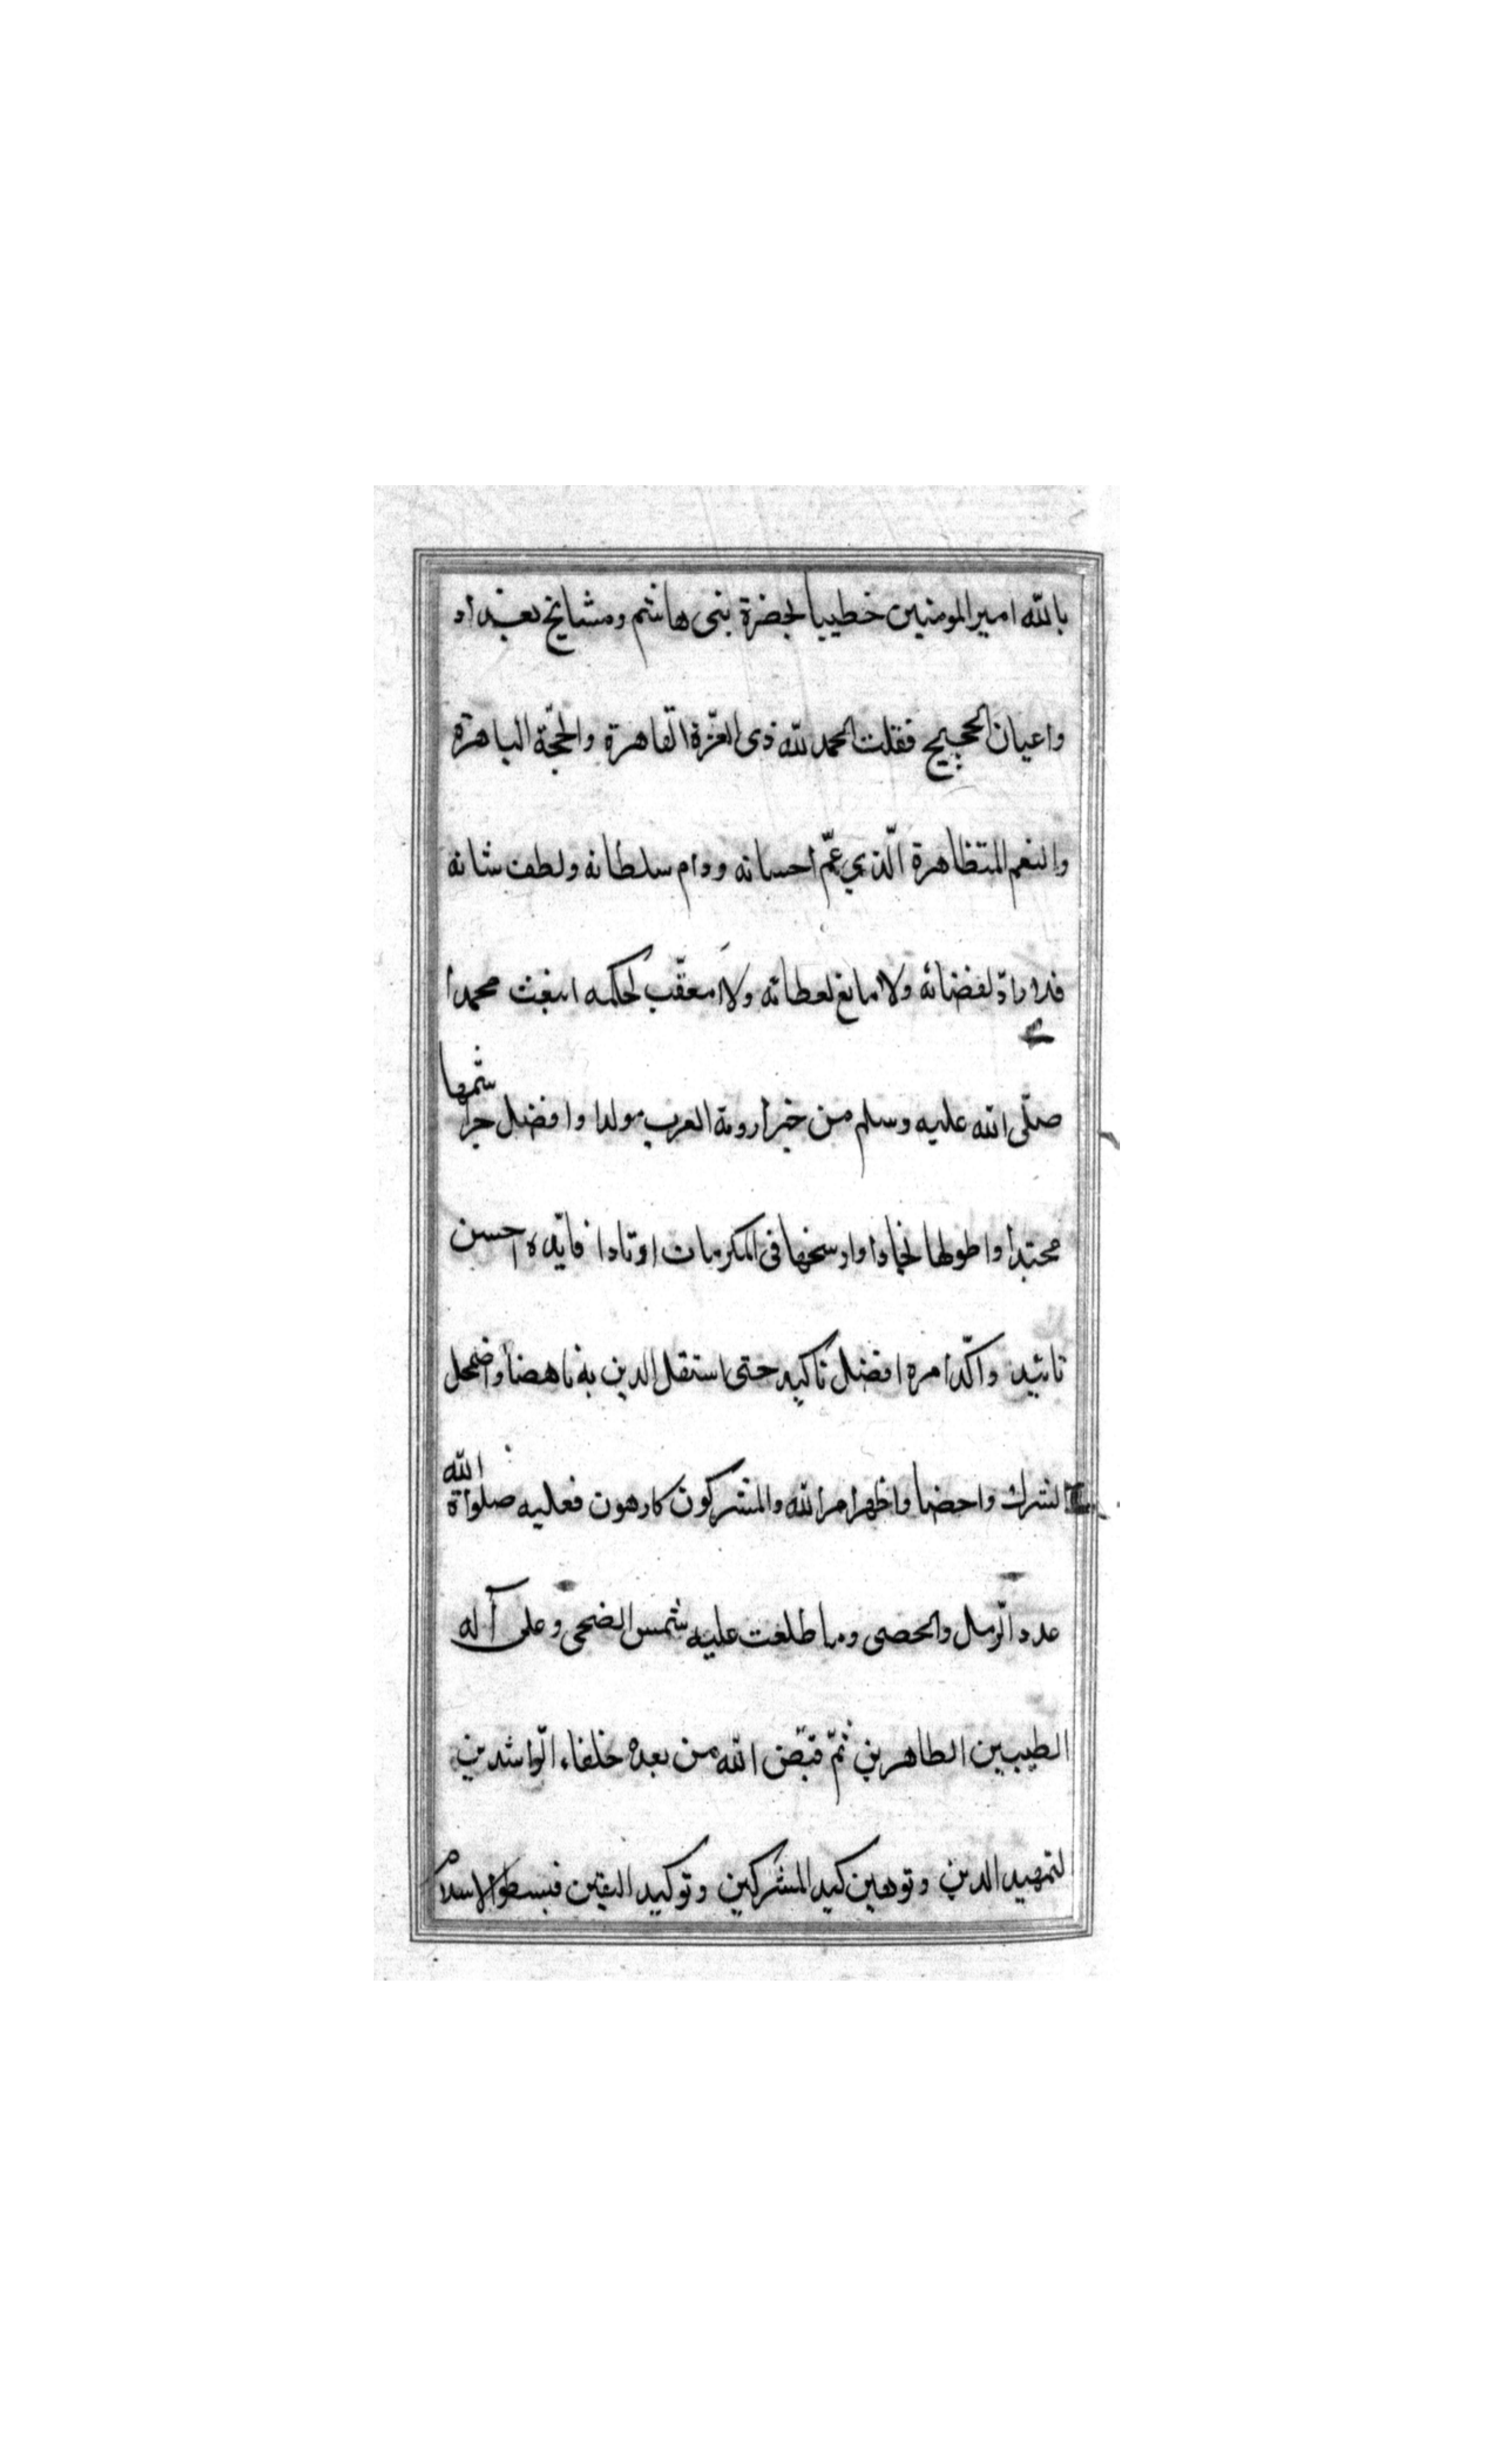 بالله امير المومنين خطيبا بحضرة بنى هاشم ومشايخ بغداد
واعيان الحجيج فقلت الحمد لله ذى العزّة القاهرة والحجّة الباهرة
والنعم المتظاهرة الّذي عمّ احسانه ودام سلطانه ولطف شانه
فلا رادّ لقضائه ولا مانع لعطائه ولا معقّب لحكمه ابتعث محمدا
صلّى الله عليه وسلم من خير ارومة العرب مولدا وافضل جراثمها
محتدا واطولها نجادا وارسخها فى المكرمات اوتادا فايّده احسن
تائيد واكّد امره افضل تاكيد حتى استقل الدين به ناهضا واضمحل
الشرك واحضا واظهر امر الله والمشركون كارهون فعليه صلواة الله
عدد الرّمل والحصى وما طلعت عليه شمس الضحى وعلى آله
الطيبين الطاهرين ثمّ قبّض الله من بعده خلفاء الرّاشدين
لتمهيد الدين وتوهين كيد المشركين وتوكيد اليقين فبسطوا الاسلام